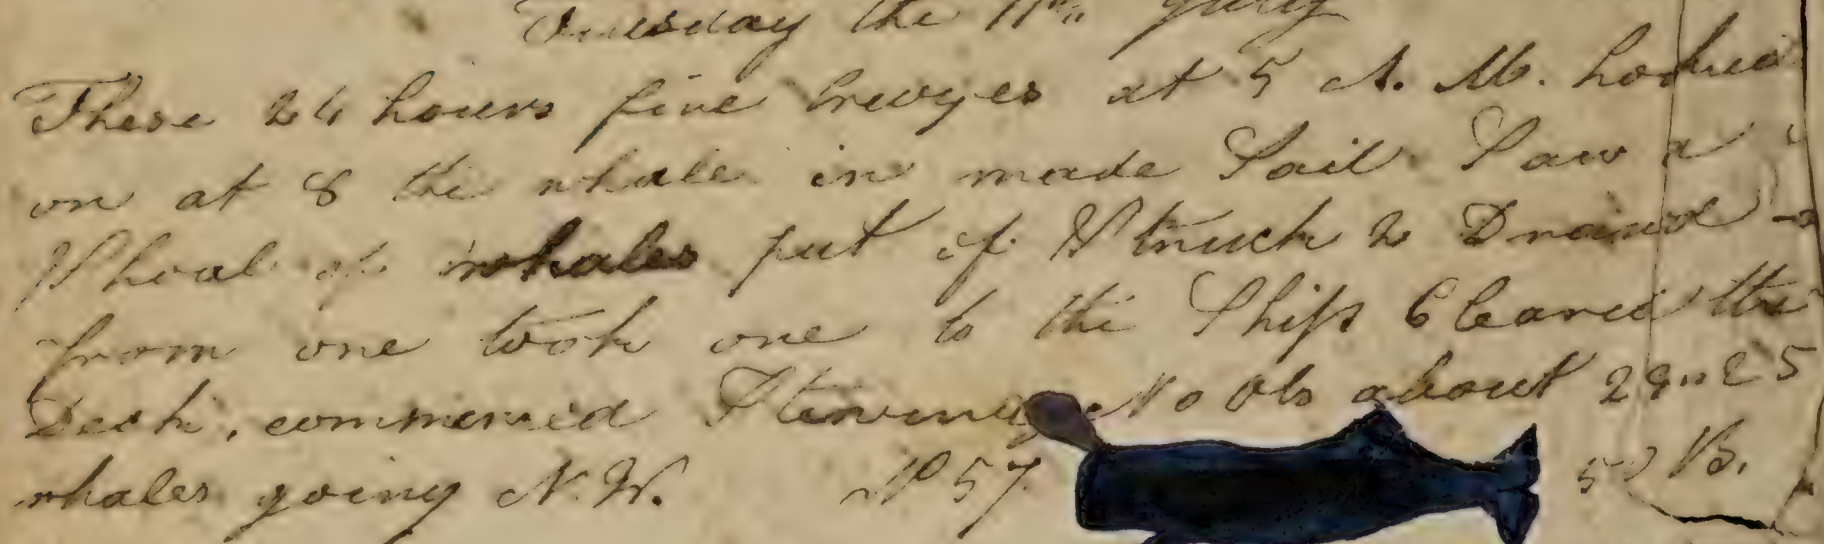 Tuesday the 11th July
These 24 hours fine breezes at 5 A. M. hooked
on at 8 the whale in made Sail Saw a
Shoal of whales put of Struck 2 Drawd
from one took one to the Ship Cleared the
Deck, commenced Stewing No Obs about 25
whales going N. W. No 57 50 B.